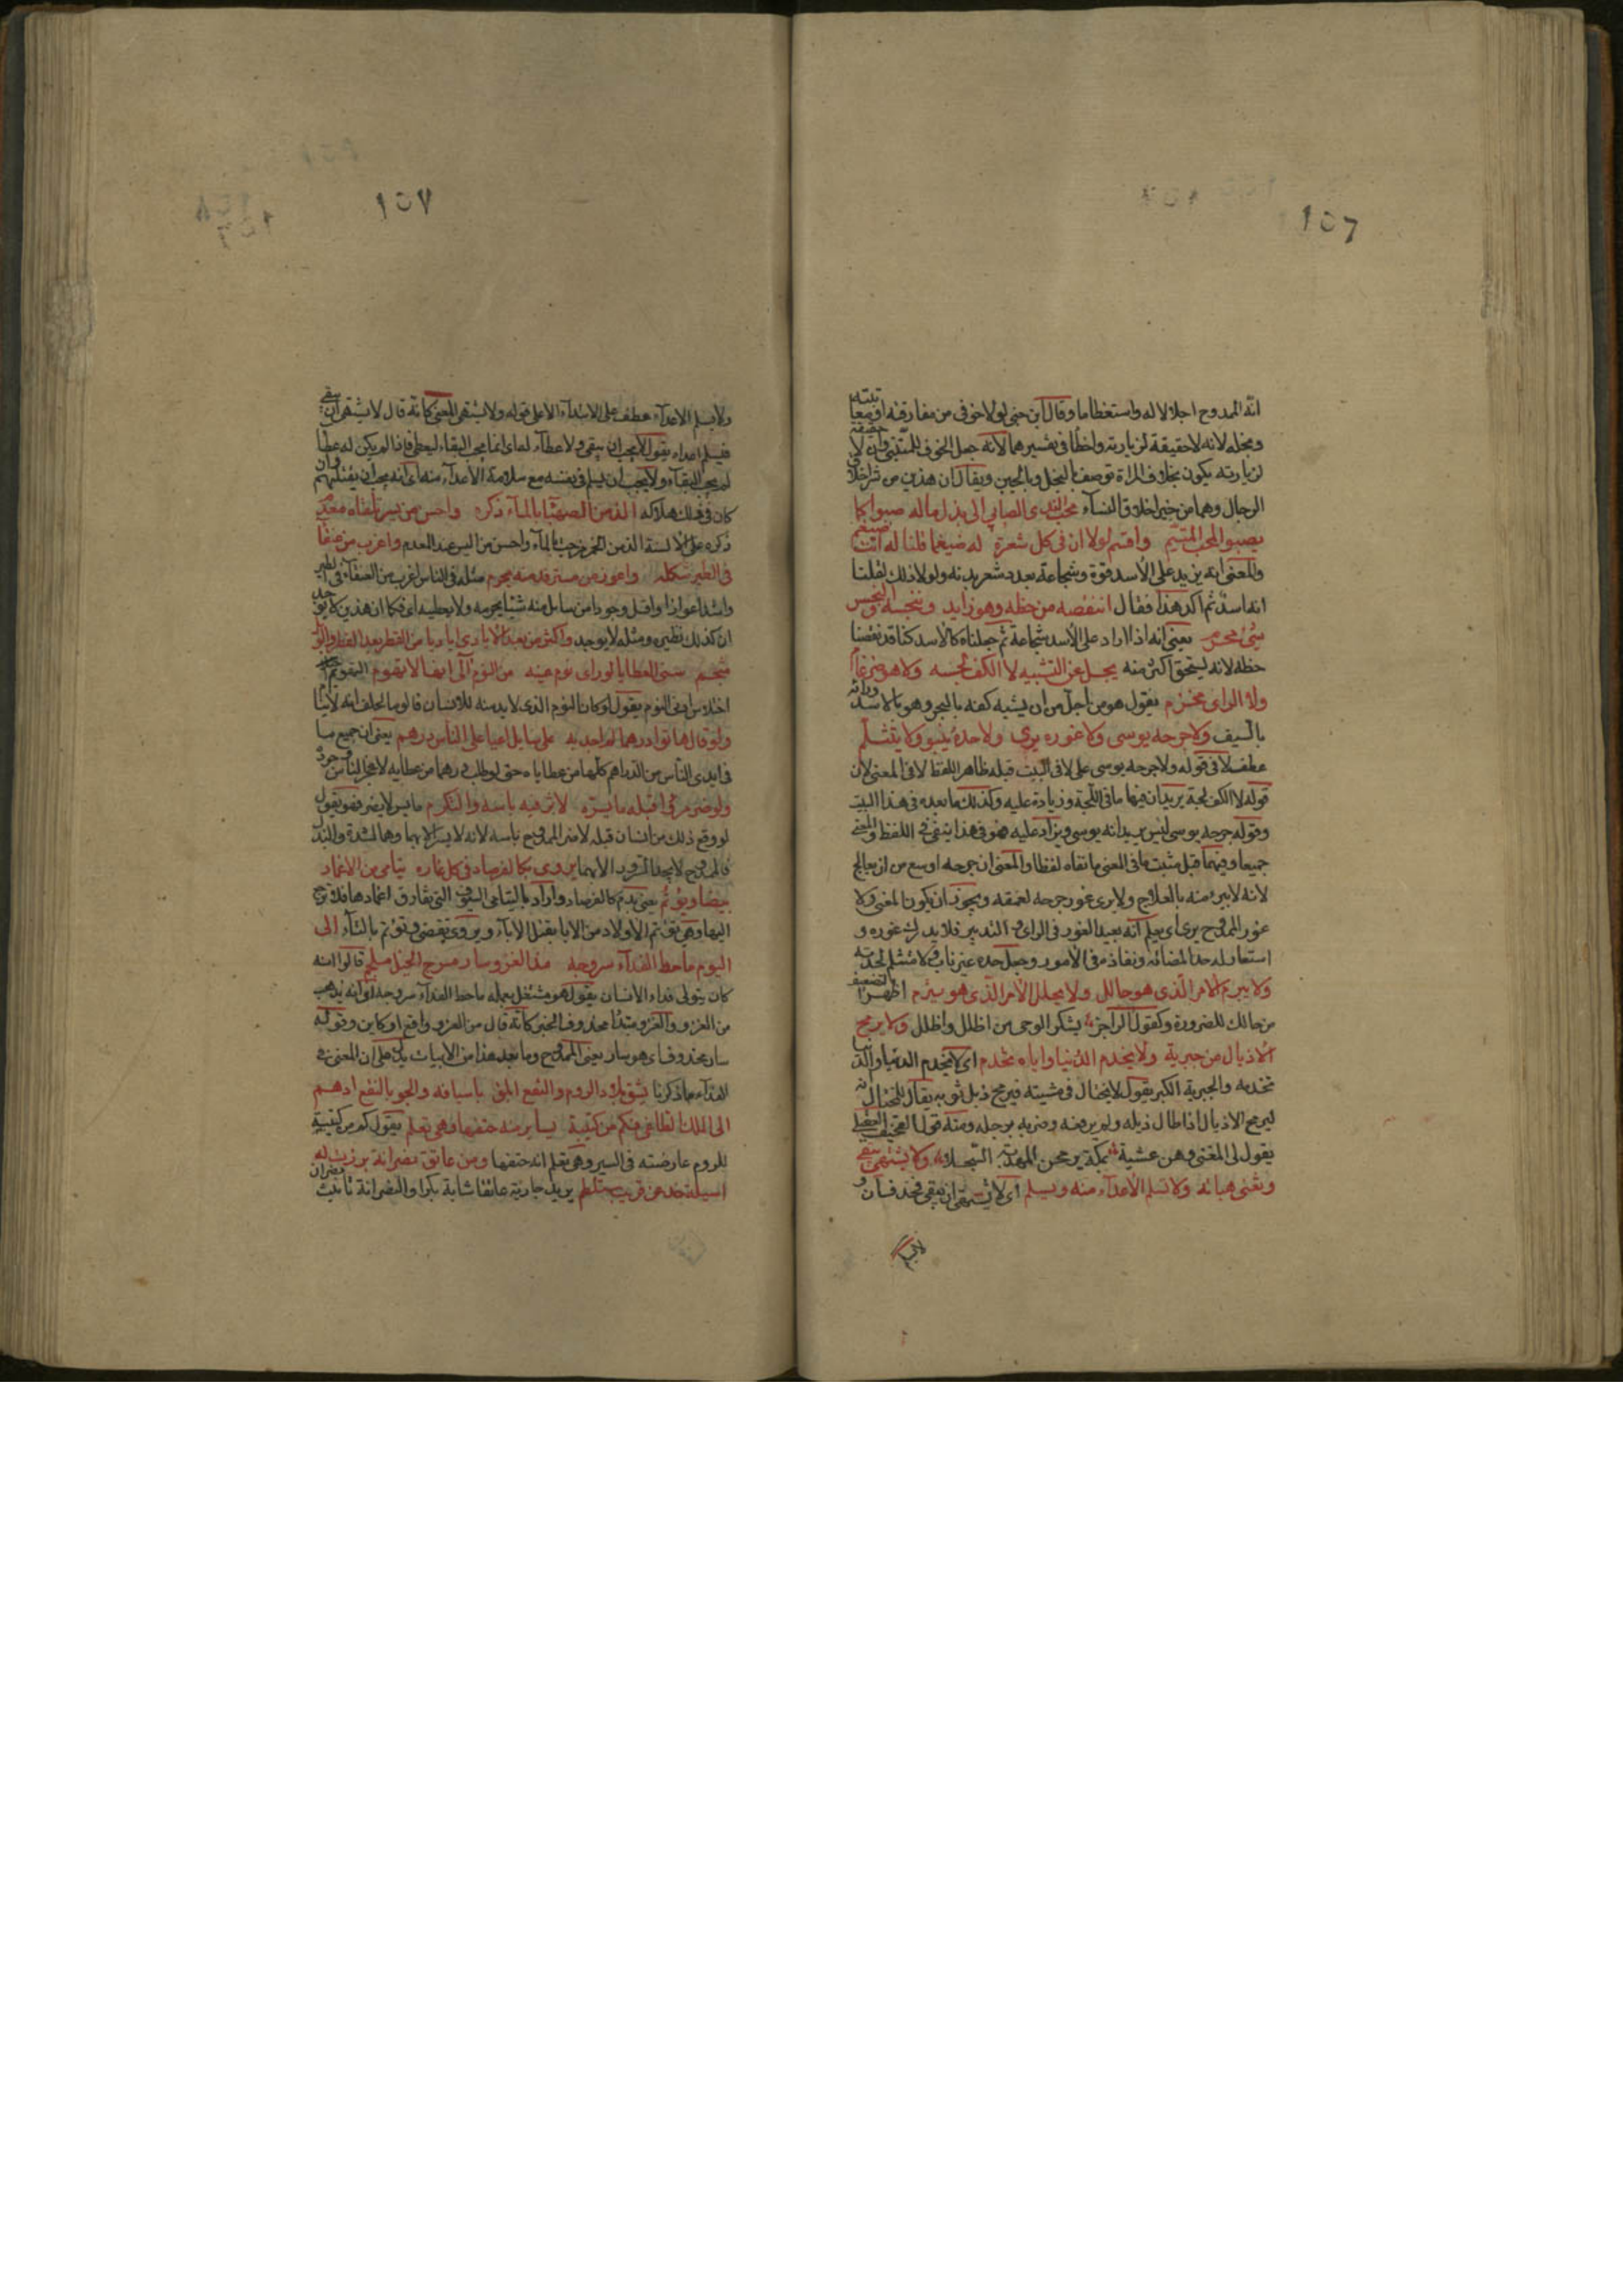 ١٥٦
انه الممدوح اجلالا له واستعظاما وقال ابن جنى لولا خوفى من مفارقته او معا
وبخله لانه لا حقيقة لزيارته واخطأ فى تفسيرهما لانه جعل الخوف للمتنبى وان لا
لزيارته يكون بخلا وفى المراة توصف بالبخل وبالجبن ويقال ان هذين من شر اخلاق
الرجال وهما من خير اخلاق النساء محب الندى الصابى الى بذل ماله صبوا كما
يصبو المحب المتيم واقسم لولا ان فى كل شعرة له ضيغما قلنا له انت ضيغم
والمعنى انه يزيد على الأسد قوة وشجاعة بعدد شعر بدنه ولولا ذلك لقلنا
انه اسد ثم اكد هذا فقال اننقصه من حظه وهو زايد ونبخسه والبخس
شئ محرم يعنى انه اذا زاد على الأسد شجاعة ثم جعلناه كالأسد كنا قد نقصنا
حظه لانه يستحق اكثر منه يجل عن التشبيه لا الكف لجة ولا هو ضرغام
ولا الراى مخذم يقول هو من اجل من ان يشبه كفه بالبحر وهو بالاسد ورايه
بالسيف ولا جرحه يوسى ولا غوره يرى ولا حده ينبو ولا يتثلم
عطف لا فى قوله ولا جرحه يوسى على لا فى البيت قبله ظاهر اللفظ لا فى المعنى لأن
قوله لا الكف لجة يريد ان فيها ما فى اللجة وزيادة عليه وكذلك ما بعده فى هذا البيت
وقوله جرحه يوسى ليس يريد انه يوسى ويزاد عليه فهو فى هذا ينفى فى اللفظ والمعنى
جميعا وفيما قبل مثبت فى المعنى ما نفاه لفظا والمعنى ان جرحه اوسع من ان يعالج
لانه لا يبرء منه بالعلاج ولا يرى غور جرحه لعمقه ويجوز ان يكون المعنى ولا
غور الممدوح يرى اى يعلم انه بعيد الغور فى الراى والتدبير فلا يدرك غوره و
استعار له حدا لمضائه ونفاذه فى الأمور وجعل حده غير ناب ولا متثلم لحدته
ولا يبرم الأمر الذى هو حالل ولا يحلل الأمر الذى هو يبرم اظهر التضعيف
من حالك للضرورة وكقول الراجز يشكو الوجى من اظلل واظلل ولا يرمح
الاذيال من جبرية ولا يخدم الدنيا واياه تخدم اى لا يخدم الدنيا والدنيا
تخدمه والجبرية الكبر يقول لا يختال فى مشيته فيرمح ذيل ثوبه يقال للمختال انه
ليرمح الاذيال اذا طال ذيله ولم يرفعه وضربه برجله ومنه قول القحيف العقيلى
يقول لى المفتى وهن عشية بمكة يرمحن المهدبة السحلا ولا يشتهى يبقى
وتفنى هباته ولا تسلم الأعداء منه ويسلم اى لا يشتهى ان يبقى فحذف ان و
١٥٧
ولا يسلم الاعداء عطف على الابتداء لا على قوله ولا يشتهى المعنى كانه قال لا يشتهى ان يبقى
فيسلم اعداؤه يقول لا يحب ان يبقى ولا عطاء له اى انما يحب البقاء ليعطى فاذا لم يكن له عطا
لم يحب البقاء ولا يحب ان يسلم فى نفسه مع سلامة الأعداء منه اى انه يحب ان يقتلهم وان
كان فى ذلك هلاكه الذ من الصهباء بالماء ذكره واحسن من يسر تلقاه معدم
ذكره على الالسنة الذ من الخمر مزجت بالماء واحسن من اليسر عند المعدم واغرب من عنقا
فى الطير شكله واعوز من مسترفد منه يحرم مثله فى الناس اغرب من العنقاء فى الطير
واشد اعوازا واقل وجودا من سايل منه شيئا يحرمه ولا يعطيه اى فكما ان هذين لا يوجد
ان كذلك نظيره ومثله لا يوجد واكثر من بعد الأيادى اياديا من القطر بعد القطر والوبل
مثجم سنى العطايا لو راى نوم عينه من اللوم آلى انها لا تهوم التهويم
اختلاس ادنى النوم يقول لو كان النوم الذى لا بد منه للانسان من لوم لحلف انه لا ينا
ولو قال هاتوا درهما لم اجد به على سايل اعيا على الناس درهم يعنى ان جميع ما
فى ايدى الناس من الدراهم كلها من عطاياه حتى لو طلب درهما من عطايه لا عجز الناس وجوده
ولو ضر مرءا قبله ما يسره لاثر فيه باسه والتكرم ما يسر لا يضر فهو يقول
لو وقع ذلك من انسان قبله لاضر الممدوح باسه لانه لا يسر الا بهما وهما الشدة والبذل
فالممدوح لا يجد السرور الا بهما يروى بكالفرصاد فى كل غارة يتامى من الاغماد
بيضا ويوتم يعنى بدم كالفرصاد واراد باليتامى السيوف التى تفارق اغمادها فلا ترجع
اليها وهى توتم الأولاد من الابا بقتل الاباء ويروى تنضى وتوتم بالتاء الى
اليوم ما حط الفداء سروجه مذ الغزو سار مسرج الخيل ملجم قالوا انه
كان يتولى فداء الانسان يقول هو مشتغل بعمله ما حط الفداء سروجه لو انه يذهب
من الغزو والغزو مبتدا محذوف الخبر كانه قال مذ الغزو واقع او كاين وقوله
سار محذوف اى هو سار يعنى الممدوح وما بعد هذا من الابيات يدل على ان المعنى فى
الفداء ما ذكرنا يشق بلاد الروم والنقع ابلق باسيافه والجو بالنقع ادهم
الى الملك الطاغى فكم من كتيبة تساير منه حتفها وهى تعلم يقول كم من كتيبة
للروم عارضته فى السير وهى تعلم انه حتفها ومن عاتق نصرانة برزت له
اسيلة خد عن قريب ستلطم يريد جارية عاتقا شابة بكرا والنصرانة تانيث نصران